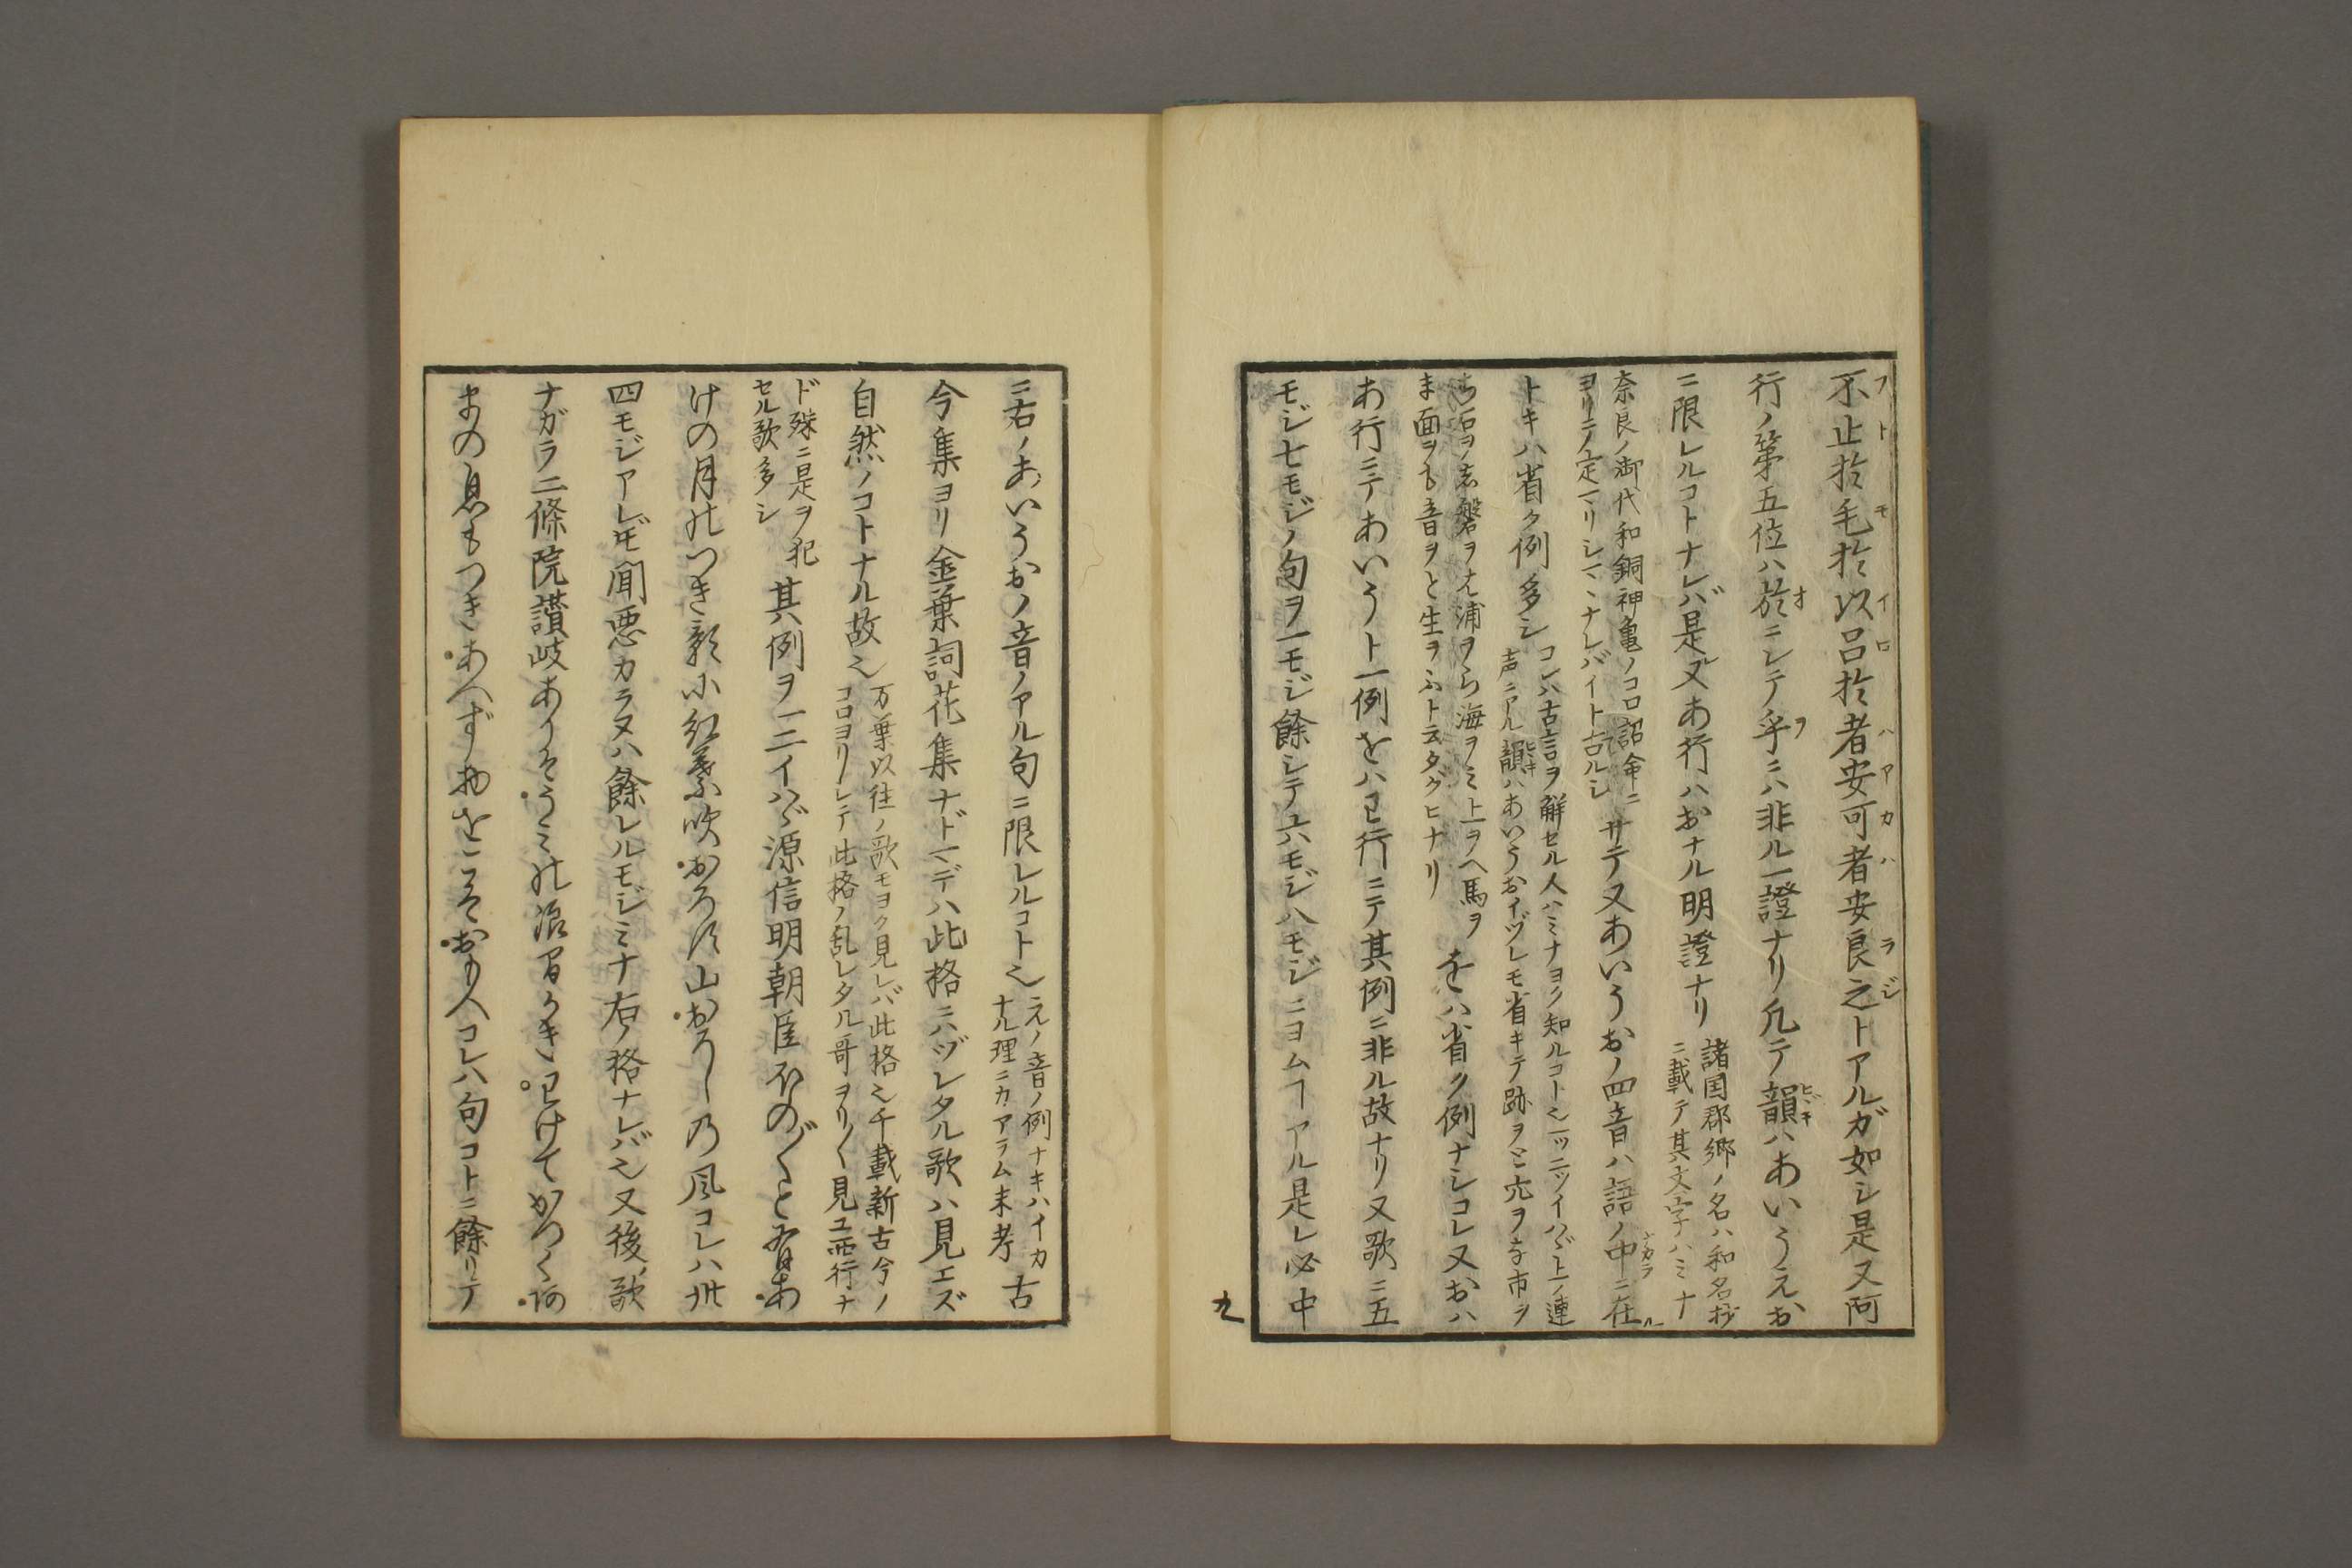 不止於毛於以呂於者安可者安良之トアルガ如シ是又阿
行ノ第五位ハ於ニシテ乎ニハ非ル一證ナリ凡テ韻ハあいうえお
ニ限レルコトナレバ是又あ行ハおナル明證ナリ
諸国郡郷ノ名ハ和名抄
ニ載テ其文字ハミナ
奈良ノ御代和銅神亀ノコロ詔命ニ
ヨリテ定マリシマヽナレバイト古ルシ
サテ又あいうおノ四音ハ語ノ中ニ在ル
トキハ省ク例多シ
コレハ古言ヲ解セル人ハミナヨク知ルコト也一ッニッイハヾ上ノ連
声ニアル韻ハあいうおイヅレモ省キテ跡ヲと穴ヲな市ヲ
ち石ヲし磐ヲは浦ヲら海ヲミ上ヲヘ馬ヲ
ま面ヲも音ヲと生ヲふト云タグヒナリ
をハ省ク例ナシコレ又おハ
あ行ニテあいうト一例をハわ行ニテ其例ニ非ル故ナリ又歌ニ五
モジ七モジノ句ヲ一モジ餘シテ六モジ八モジニヨムヿアル是レ必中
九
ニ右ノあいうおノ音ノアル句ニ限レルコト也
えノ音ノ例ナキハイカ
ナル理ニカアラム末考
古
今集ヨリ金葉詞花集ナドマデハ此格ニハヅレタル歌ハ見エズ
自然ノコトナル故也
万葉以往ノ歌モヨク見レバ此格也千載新古今ノ
コロヨリシテ此格ノ乱レタル哥ヲリ〱見ユ西行ナ
ド殊ニ是ヲ犯
セル歌多シ
其例ヲ一二イハヾ源信明朝臣ほの〲と有あ
けの月のつき影に紅葉吹おろす山おろしの風コレハ卅
四モジアレドモ聞悪カラヌハ餘レルモジミナ右ノ格ナレバ也又後ノ歌
ナガラ二條院讃岐ありそうみの浪間かきわけてかつく海
まの息もつきあへず物をこそおもへコレハ句コトニ餘リテ